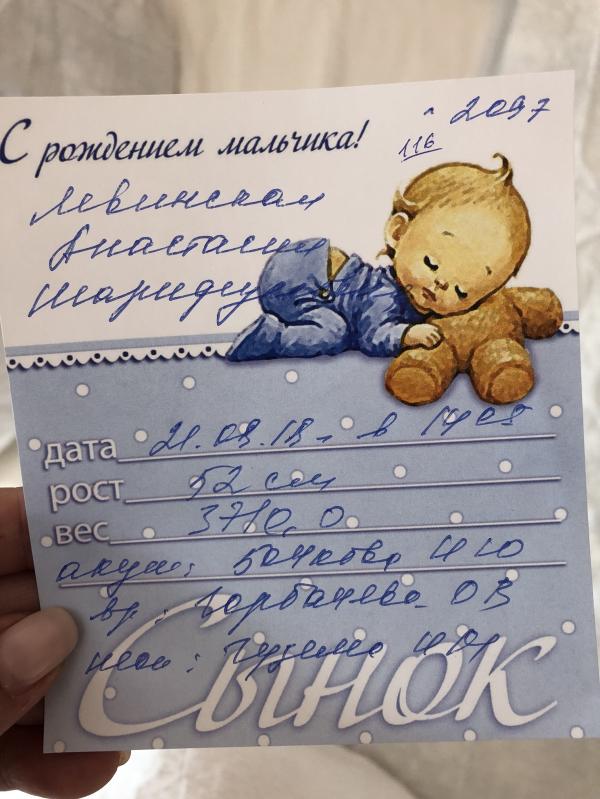 2097
С рождением мальчика!
116
Левинская
Анастасия
дата 21.09.18 в 14 05
рост 52 см
вес 3710,0
акуш: Бочкова Н Ю
вр: Горбачева ОВ
Сынок